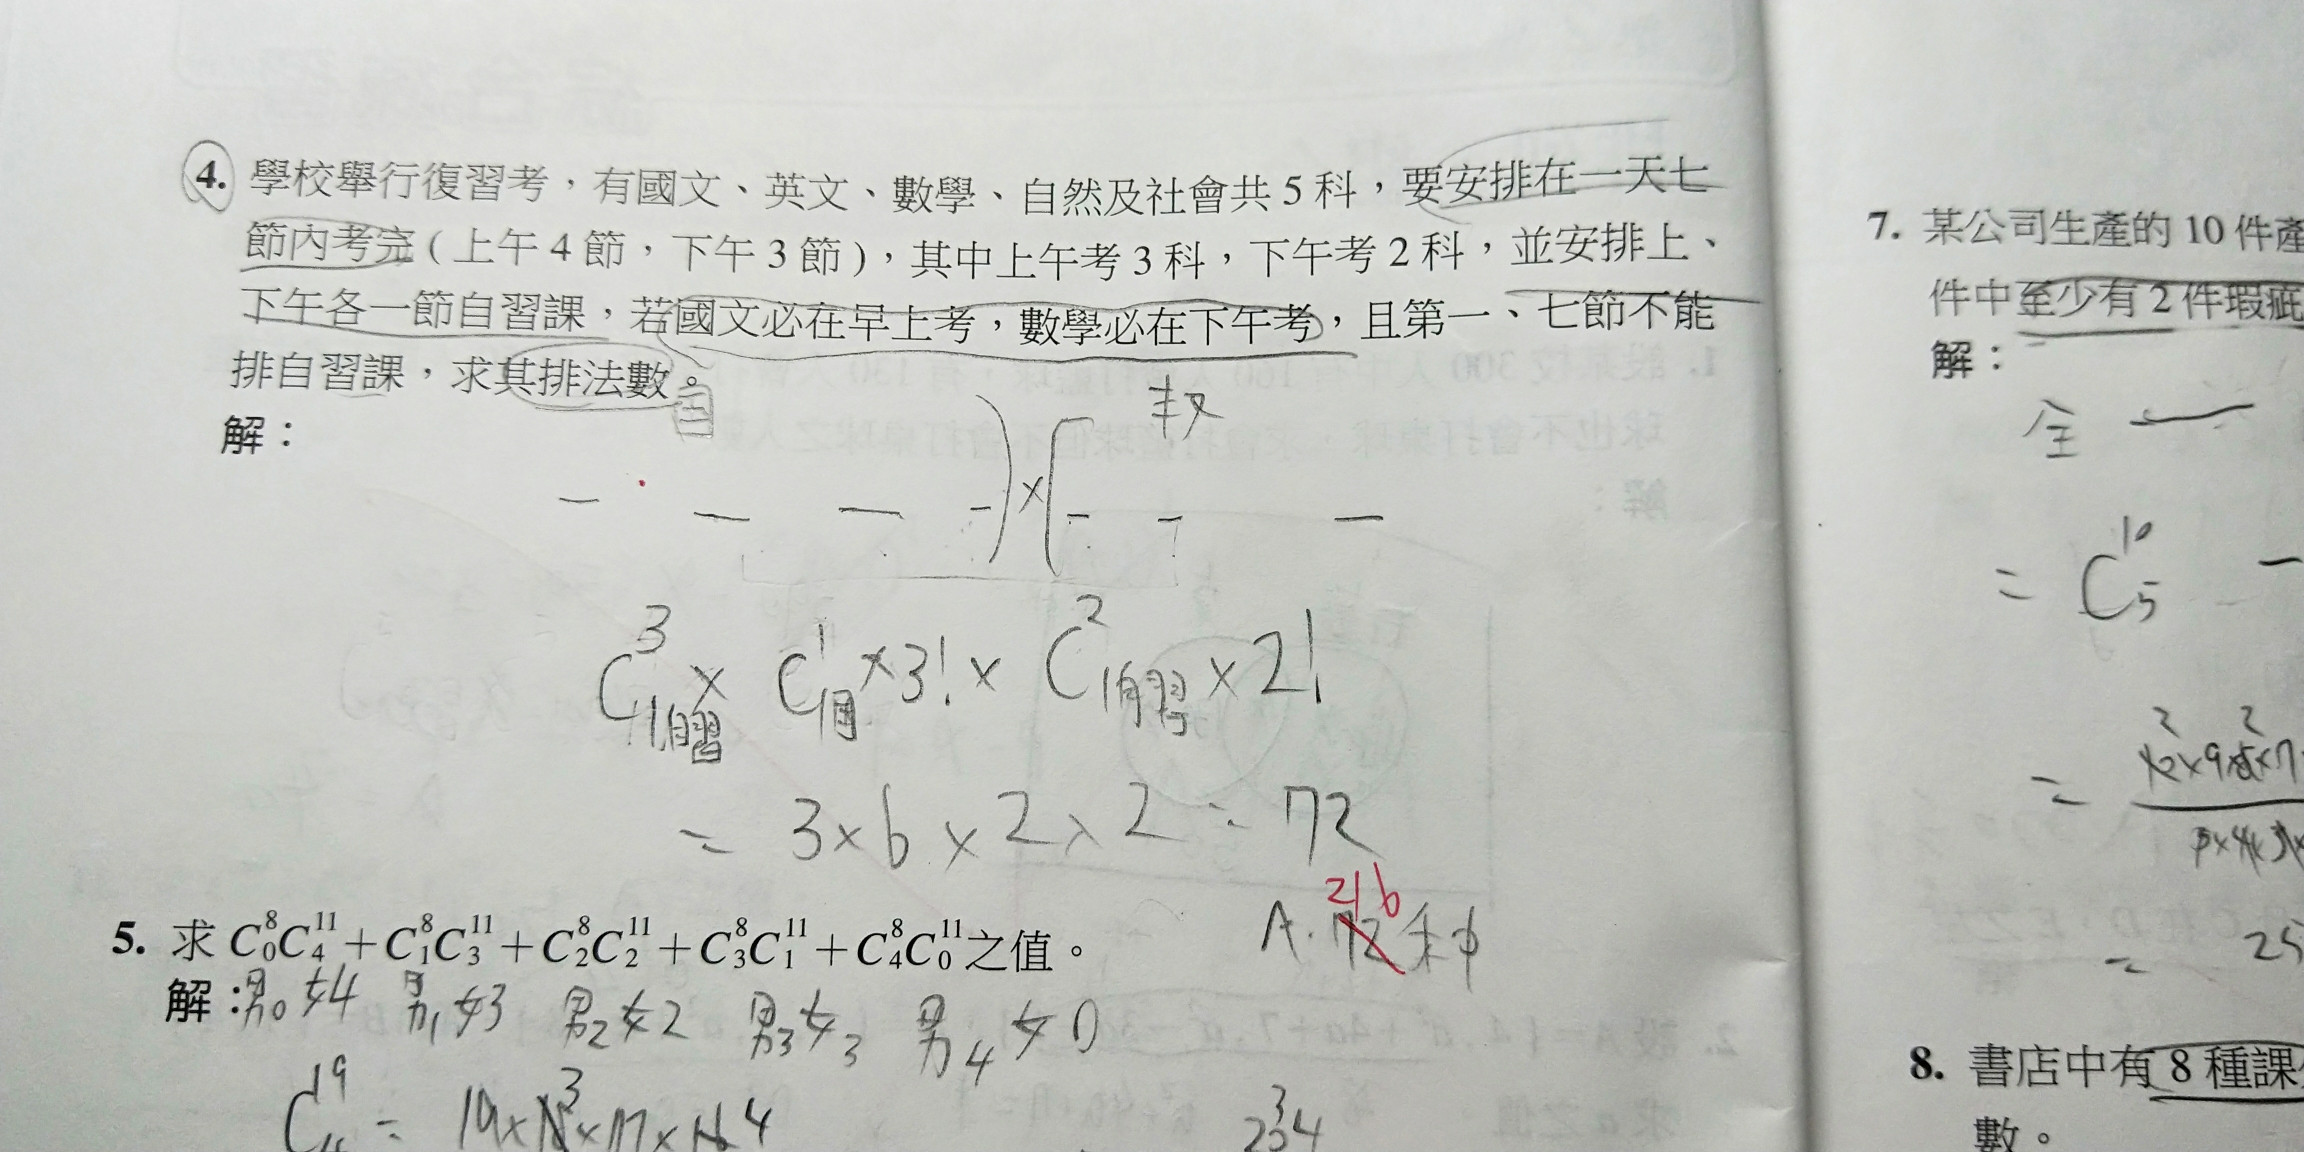 4. 學校舉行復習考，有國文、英文、數學、自然及社會共 5 科，要安排在一天七
節內考完 ( 上午 4 節，下午 3 節 )，其中上午考 3 科，下午考 2 科，並安排上、
下午各一節自習課，若國文必在早上考，數學必在下午考，且第一、七節不能
排自習課，求其排法數。
解：
C³₁自習 × C¹₁國 ×3! × C²₁自習 ×2!
= 3×6×2×2 = 72
216
A. 72 種
5. 求 C⁸₀C¹¹₄ + C⁸₁C¹¹₃ + C⁸₂C¹¹₂ + C⁸₃C¹¹₁ + C⁸₄C¹¹₀ 之值。
解：男0 女4 男1 女3 男2 女2 男3 女3 男4 女0
7. 某公司生產的 10 件產
件中至少有 2 件瑕疵
解：
全 —
= C¹⁰₅ —
8. 書店中有 8 種課
數。